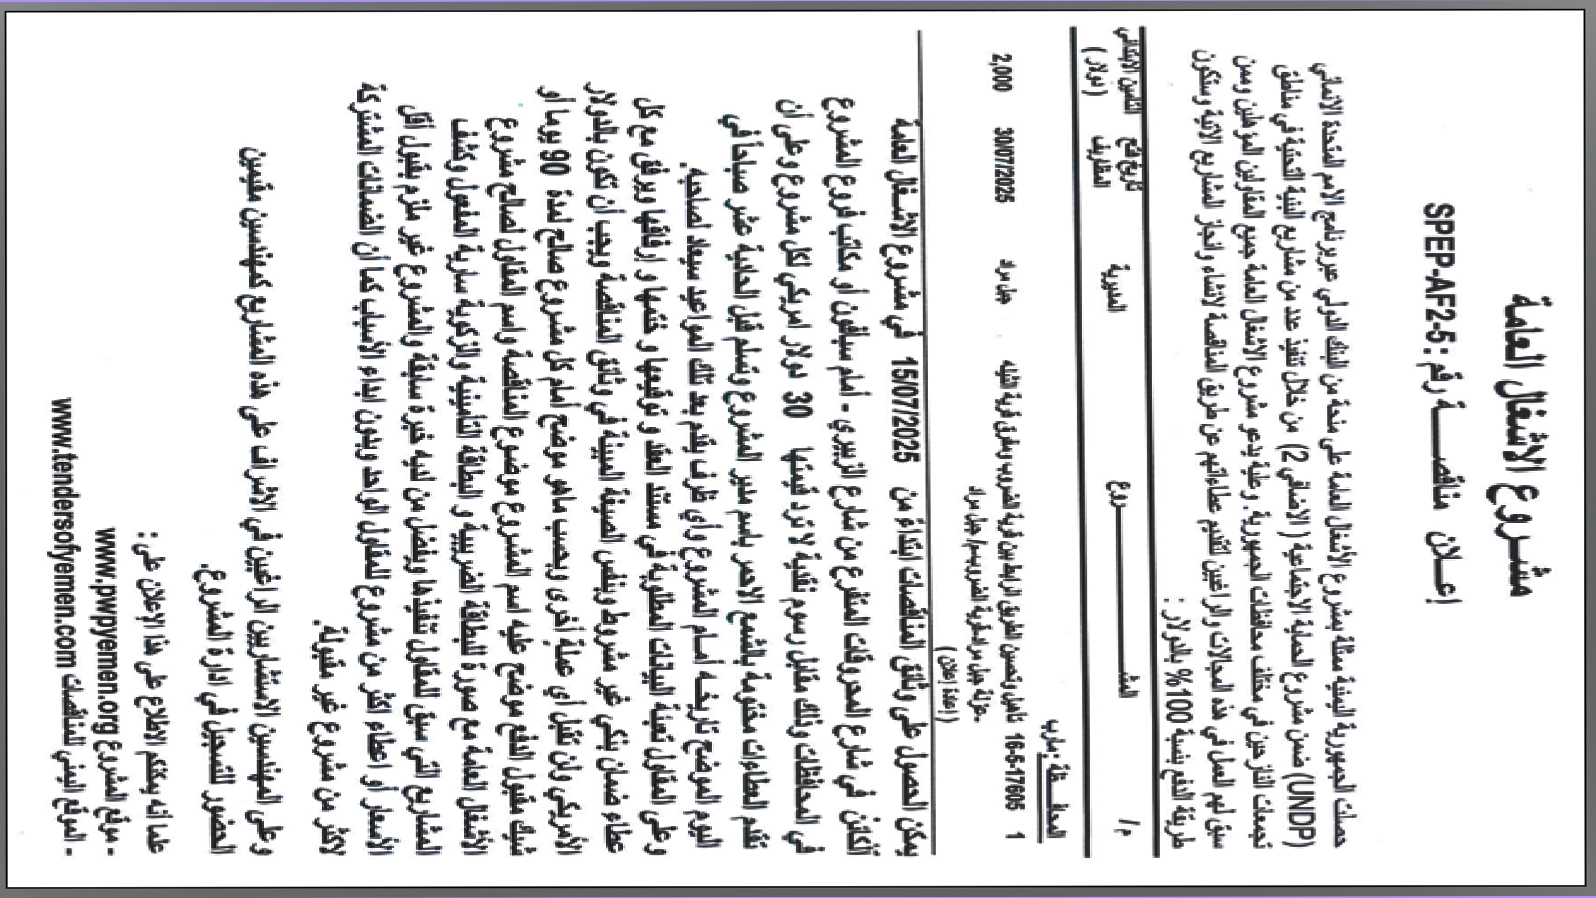 مشروع الاشغال العامة
إعلان مناقصة رقم : SPEP-AF2-5
حصلت الجمهورية اليمنية ممثلة بمشروع الأشغال العامة على منحة من البنك الدولي عبر برنامج الامم المتحدة الانمائي
(UNDP) ضمن مشروع الحماية الاجتماعية ( الاضافي 2) من خلال تنفيذ عدد من مشاريع البنية التحتية في مناطق
تجمعات النازحين في مختلف محافظات الجمهورية. وعليه يدعو مشروع الاشغال العامة جميع المقاولين المؤهلين وممن
سبق لهم العمل في هذه المجالات والراغبين لتقديم عطاءاتهم عن طريق المناقصة لانشاء وانجاز المشاريع الاتية وستكون
طريقة الدفع بنسبة 100% بالدولار :
م/ المشــــروع المديرية تاريخ فتح المظاريف التامين الابتدائي ( دولار )
المحافــظة : مارب
1 16-5-17605 تاهيل وتحسين الطريق الرابط بين قرية الضروب ومفرق قرية الثيله 2,000 30/07/2025 جبل مراد
-عزلة جبل مراد-قرية الضروب-م/ جبل مراد
( إعادة إعلان )
يمكن الحصول على وثائق المناقصات ابتداءً من 15/07/2025 في مشروع الاشغال العامة
الكائن في شارع المحروقات المتفرع من شارع الزبيري - أمام سبأفون أو مكاتب فروع المشروع
في المحافظات وذلك مقابل رسوم نقدية لا ترد قيمتها 30 دولار امريكي لكل مشروع وعلى أن
تقدم العطاءات مختومة بالشمع الاحمر باسم مدير المشروع وتسلم قبل الحادية عشر صباحاً في
اليوم الموضح تاريخه أمام المشروع وأي ظرف يقدم بعد تلك المواعيد سيعاد لصاحبه.
وعلى المقاول تعبئة البيانات المطلوبة في مستند العقد و توقيعها و ختمها و ارفاقها ويرفق مع كل
عطاء ضمان بنكي غير مشروط وبنفس الصيغة المبينة في وثائق المناقصة ويجب أن تكون بالدولار
الأمريكي ولن تقبل أي عملة أخرى وبحسب ماهو موضح أمام كل مشروع صالح لمدة 90 يوما أو
شيك مقبول الدفع موضح عليه اسم المشروع موضوع المناقصة واسم المقاول لصالح مشروع
الأشغال العامة مع صورة للبطاقة الضريبية و البطاقة التأمينية والزكوية سارية المفعول وكشف
المشاريع التي سبق للمقاول تنفيذها ويفضل من لديه خبرة سابقة والمشروع غير ملزم بقبول أقل
الأسعار أو اعطاء اكثر من مشروع للمقاول الواحد وبدون ابداء الأسباب كما أن الضمانات المشتركة
لاكثر من مشروع غير مقبولة.
وعلى المهندسين الاستشاريين الراغبين في الاشراف على هذه المشاريع كمهندسين مقيمين
الحضور للتسجيل في ادارة المشروع.
علما أنه يمكنكم الاطلاع على هذا الإعلان على :
- موقع المشروع www.pwpyemen.org
- الموقع اليمني للمناقصات www.tendersofyemen.com